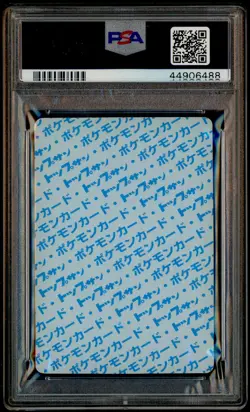 PSA
44906488
ポケモンカード
トップサン・ポケモン
ポケモンカード・トップサン
トップサン・ポケモンカード
ポケモンカード・トップサン
トップサン・ポケモンカード
ポケモンカード・トップサン
トップサン・ポケモンカード
ポケモンカード・トップサン